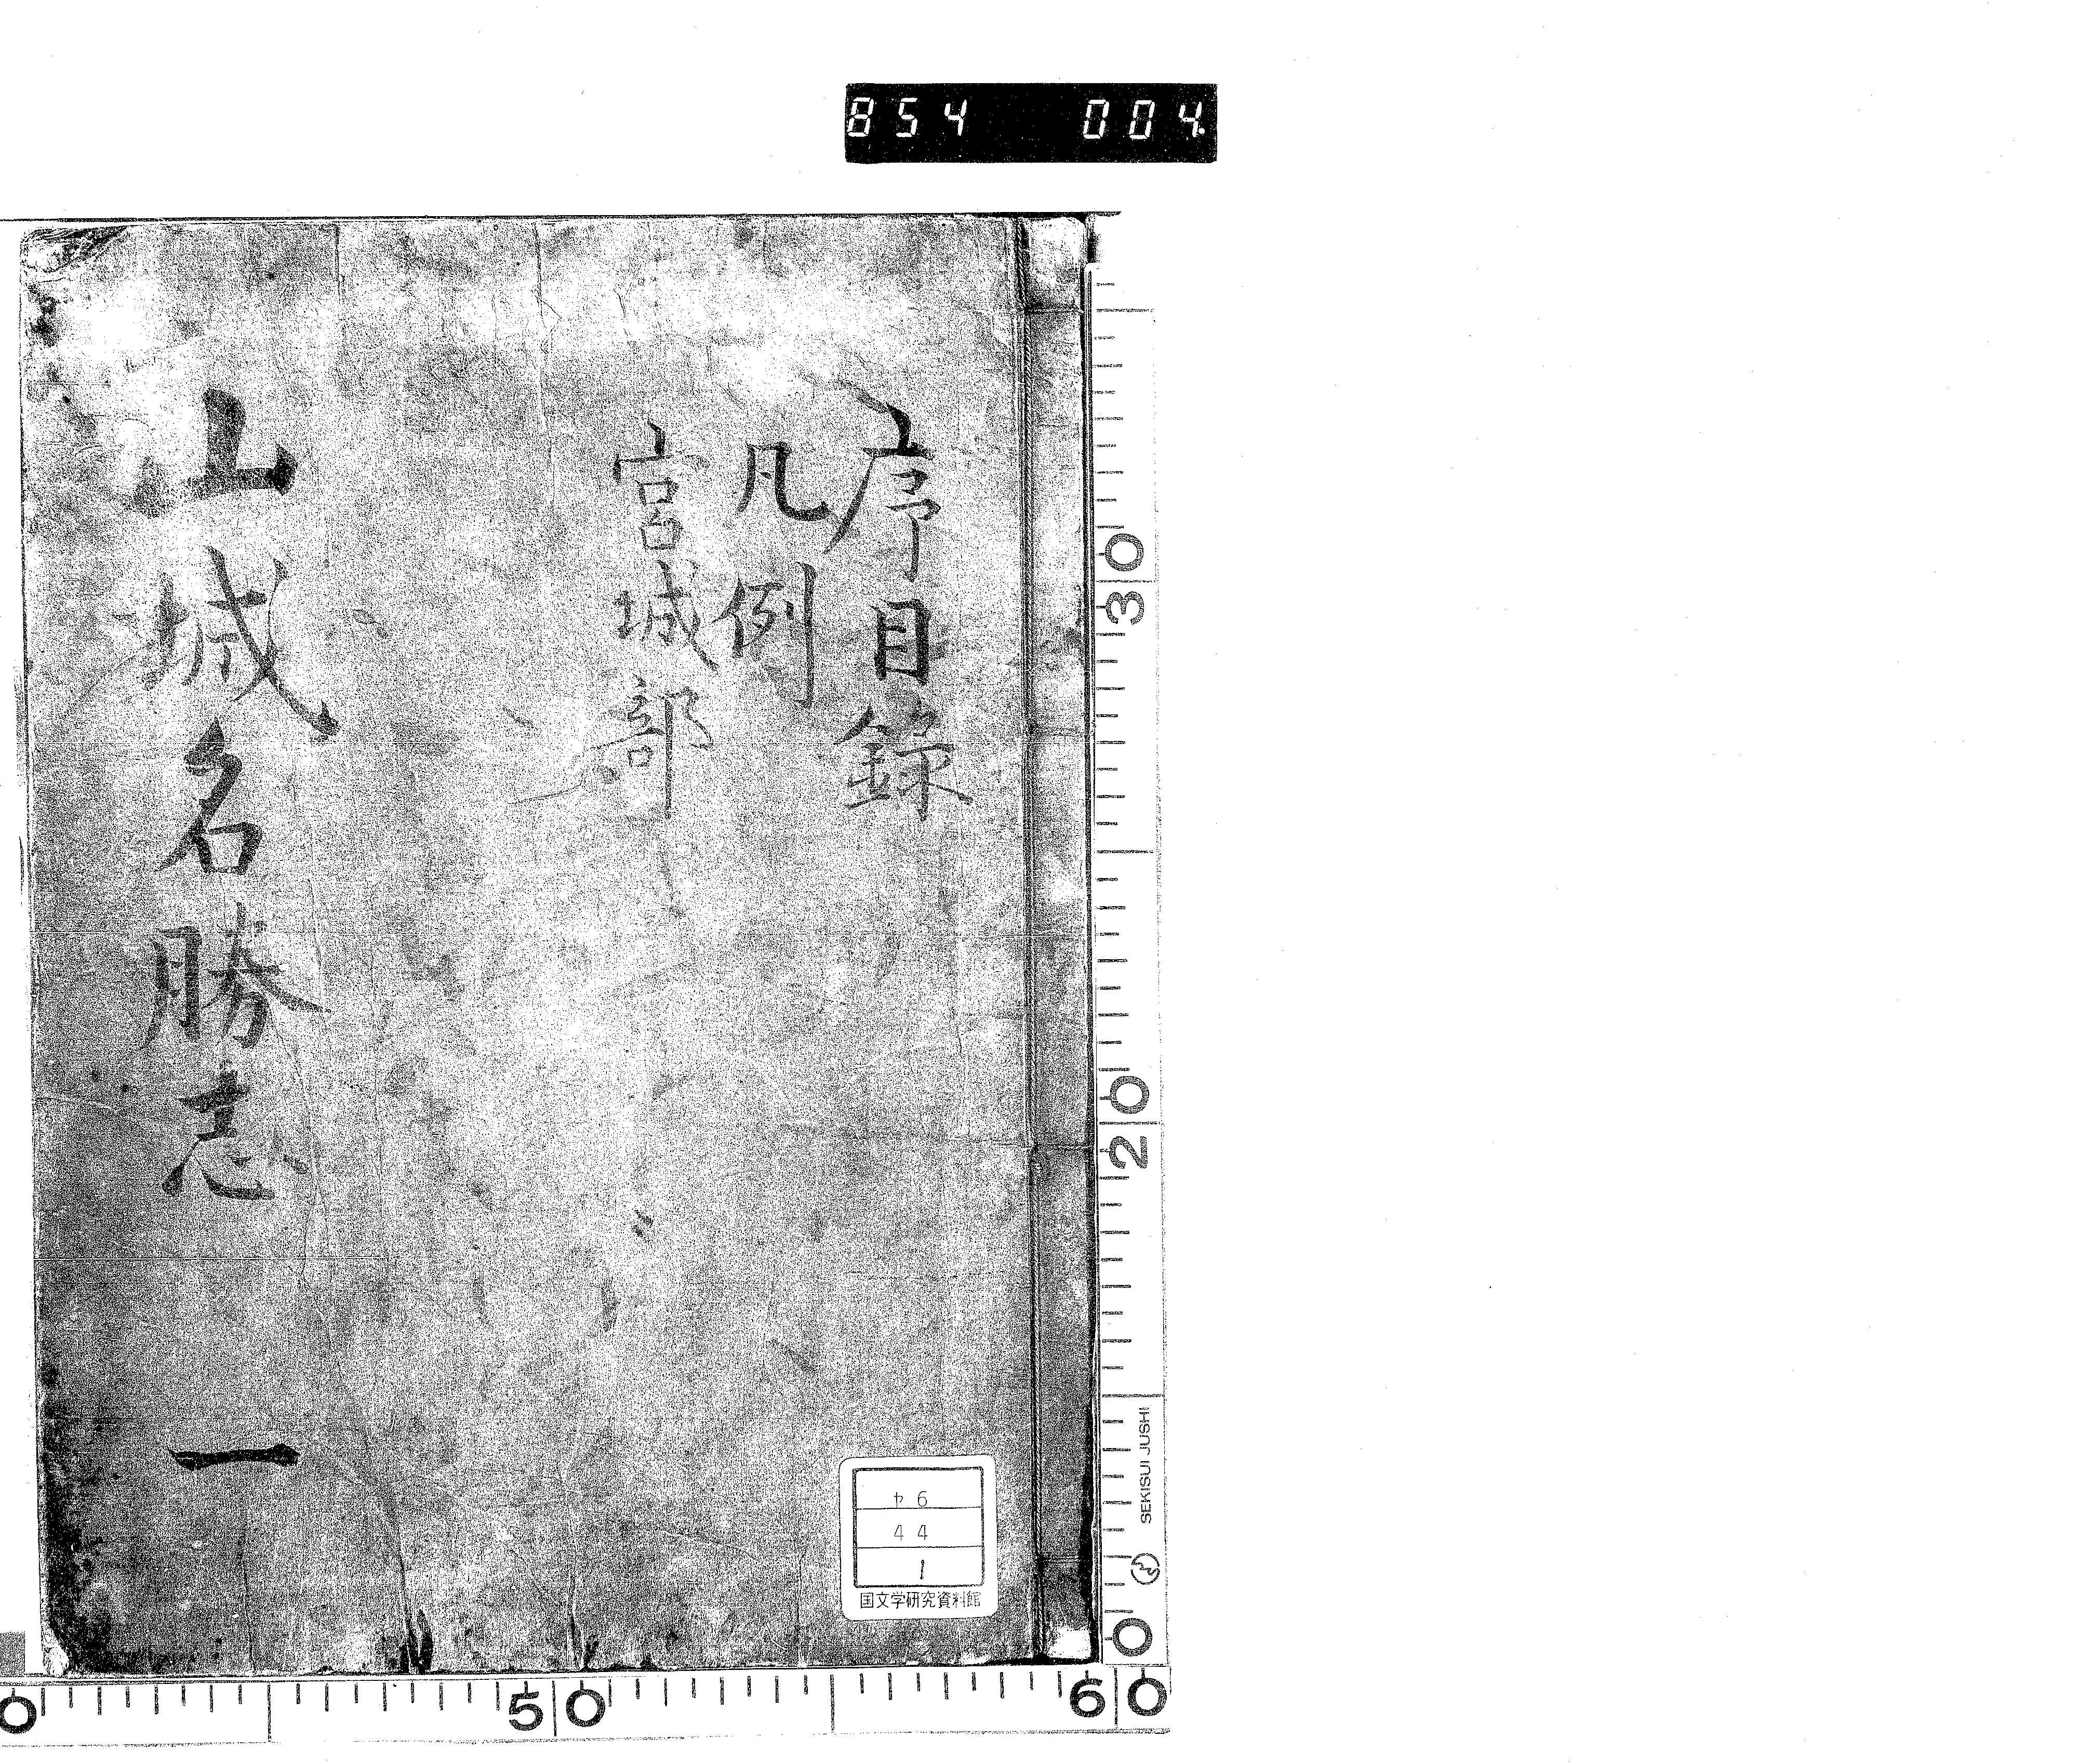 854 004.
序目録
凡例
宮城部
山城名勝志
一
ヤ6
44
1
国文学研究資料館
30
20
0
SEKISUI JUSHI
0
50
60